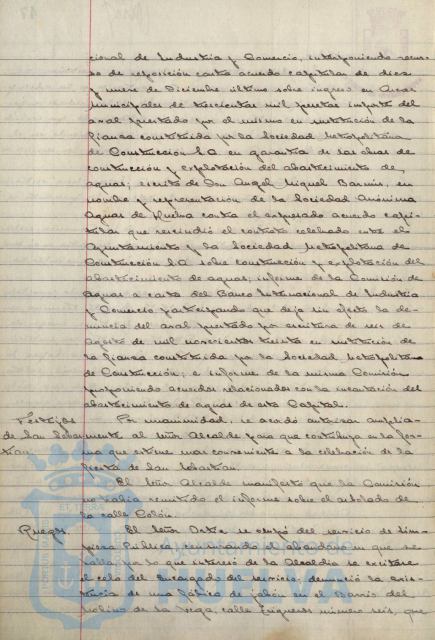 cional de Industria y Comercio, interponiendo recur-
so de reposición contra acuerdo capitular de diez
y nueve de Diciembre último sobre ingreso en Arcas
Municipales de trescientas mil pesetas importe del
aval prestado por el mismo en sustitución de la
fianza constituida por la Sociedad Metropolitana
de Construccion S.A. en garantía de las obras de
construcción y explotación del abastecimiento de
aguas; escrito de Don Angel Miguel en
nombre y representación de la Sociedad Anónima
Aguas de Huelva contra el expresado acuerdo capi-
tular que rescindió el contrato celebrado entre el
Ayuntamiento y la Sociedad Metropolitana de
Construcción S.A. sobre construcción y explotación del
abastecimiento de aguas; informe de la Comisión de
Aguas a carta del Banco Internacional de Industria
y Comercio participando que deja sin efecto la de-
nuncia del aval prestado por escritura de seis de
Agosto de mil novecientos treinta en sustitución de
la fianza constituida por la Sociedad Metropolitana
de Construcción; e informe de la misma Comisión
proponiendo acuerdos relacionados con la incautación del
abastecimiento de aguas de esta Capital.
Festejos Por unanimidad, se acordó autorizar amplia-
de San Sebas- mente al Señor Alcalde para que contribuya en la for-
tian. ma que estime mas conveniente a la celebración de la
fiesta de San Sebastian.
El Señor Alcalde manifestó que la Comisión
no había remitido el informe sobre el arbolado de
la calle Colón.
Ruegos. El Señor Ortiz se ocupó del servicio de Lim-
pieza Pública, censurando el abandono en que se
halla, por lo que interesó de la Alcaldia se excitare
el celo del Encargado del servicio; denunció la exis-
tencia de una fábrica de jabón en el Barrio del
Molino de la Vega, calle número seis, que
Ayuntamiento de
HUELVA